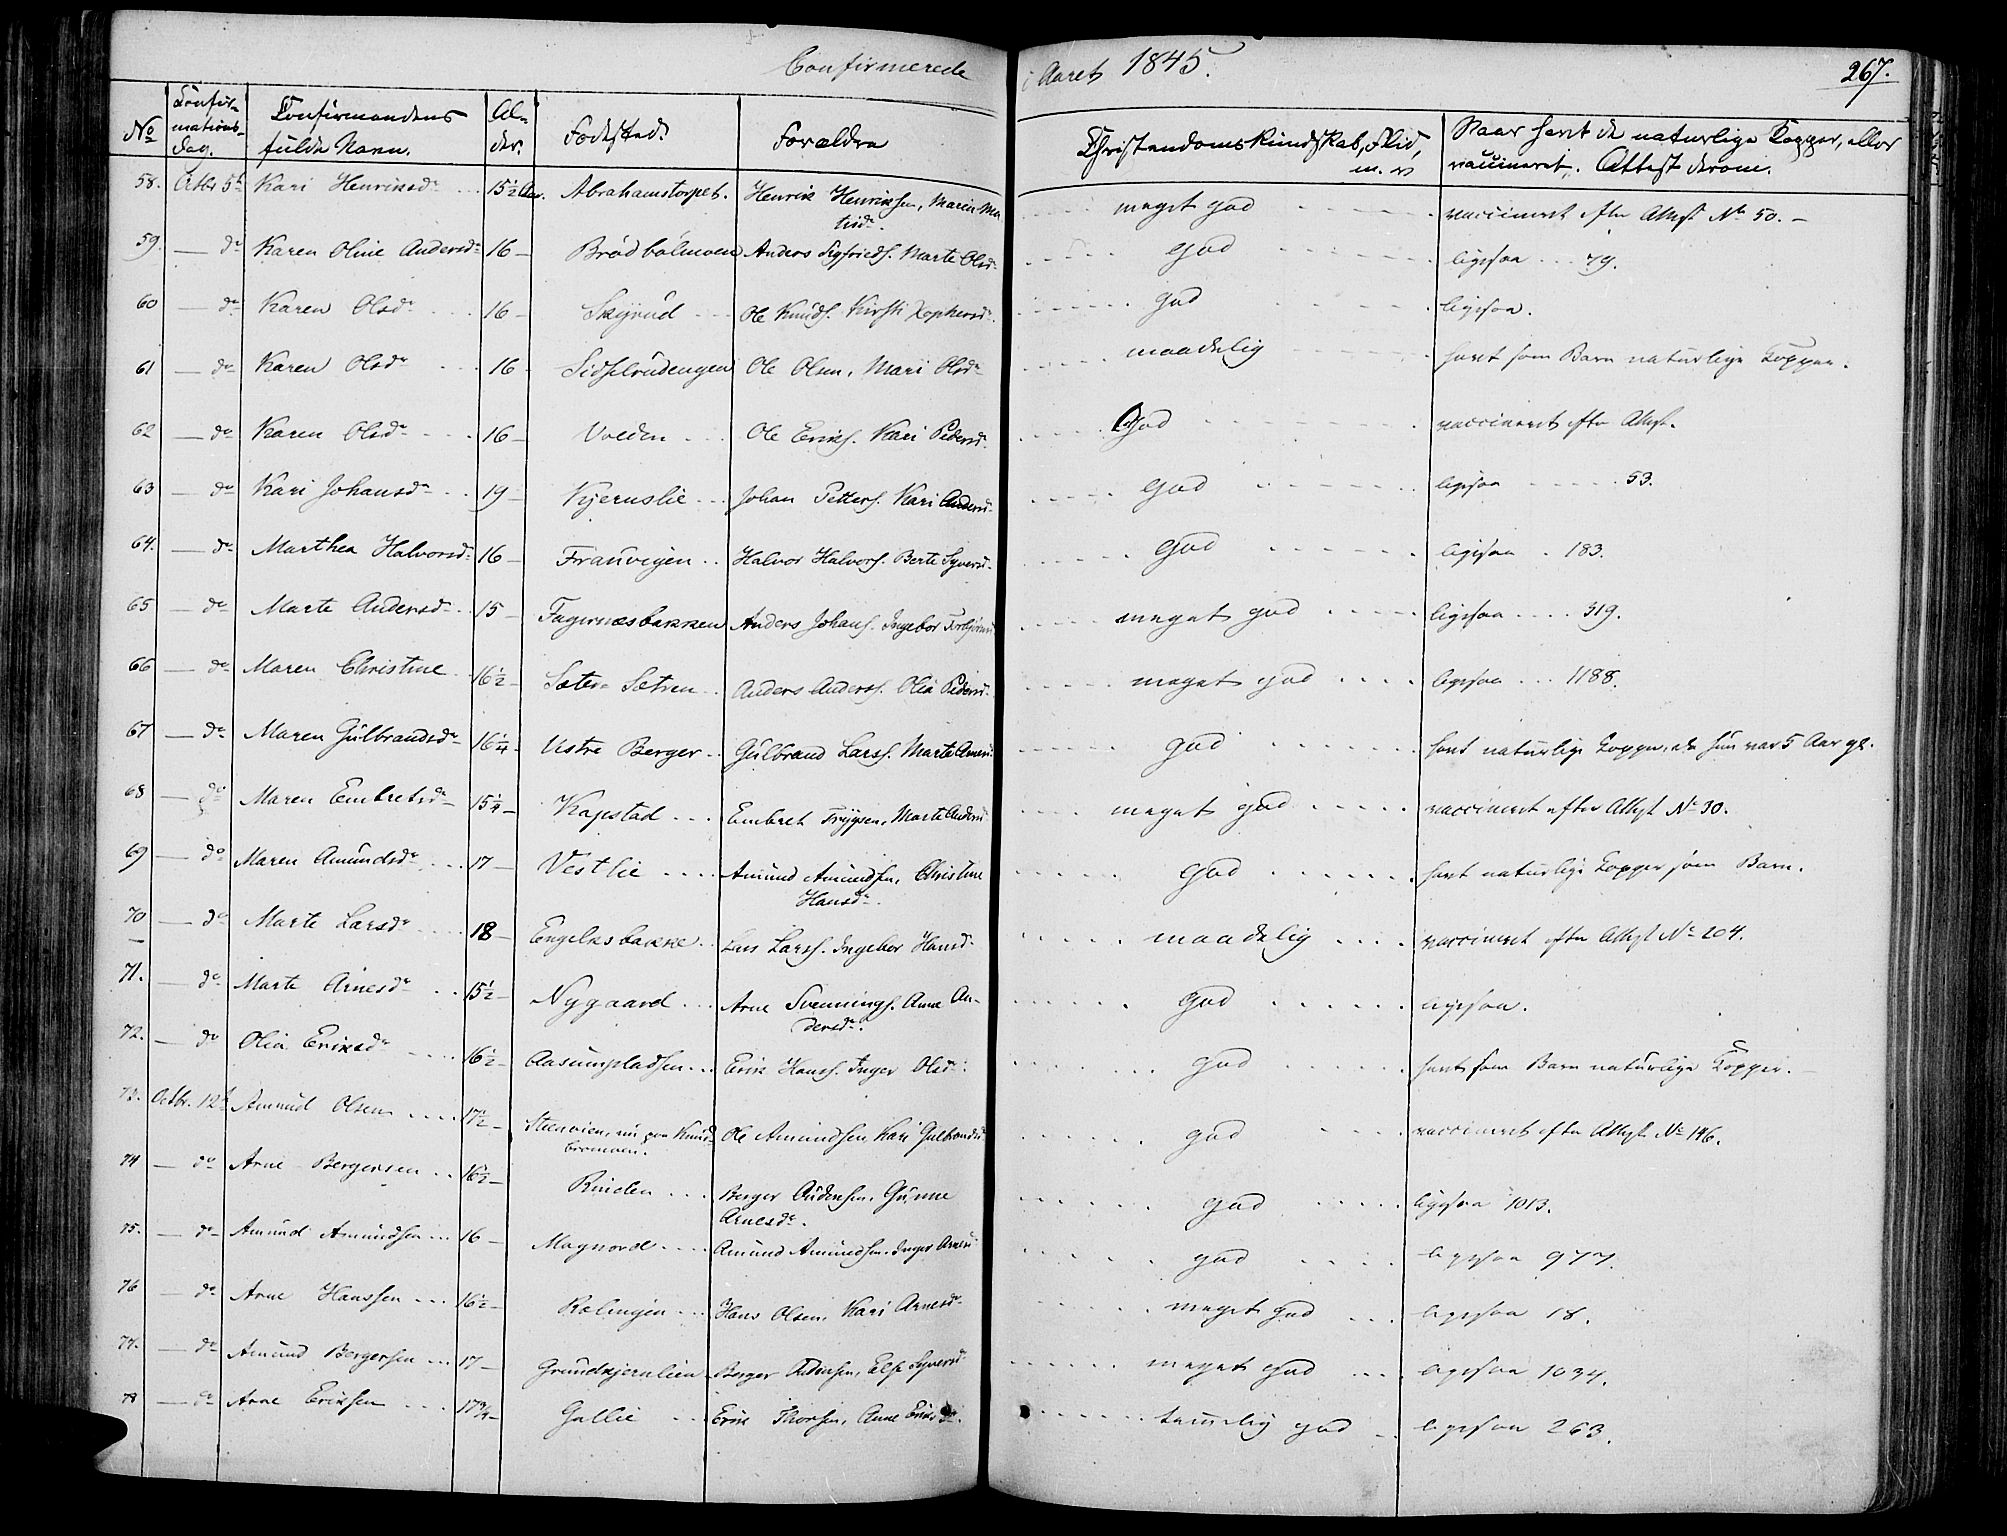 Confirmerede i Aaret 1845. 267.
No Confirmations-Dag. Confirmandens fulde Navn. Alder. Fødested. Forældre Christendomskundskab, Flid, m.v. Naar havt de naturlige Kopper, eller vaccineret. Attest derom.
58. Octbr 5t Kari Henriksdr 15 1/2 Aar. Abrahamstorpet. Henrik Henriksen, Maren meget god vaccineret efter Attest No 50.
59. — do Karen Oline Andersdr 16 — Brødbølmoen Anders Sigfrieds. Marte Olsdr god ligesaa 79.
60 — do Karen Olsdr 16 — Skyrud Ole Knuds. Kirsti god ligesaa.
61 — do Karen Olsdr 16 Sidselrudengen Ole Olsen, Mari Olsdr maadelig havt som Barn naturlige Kopper.
62 — do Karen Olsdr 16 — Volden Ole Eriks. Kari Pedersd. God vaccineret efter Attest.
63 — do Kari Johansdr 19 — Kjernslie Johan Petters. Kari Andersd. god ligesaa 53.
64. — do Marthea Halvorsd. 16 — Franvigen Halvor Halvors. Berte Syversd. god ligesaa 183.
65 — do Marte Andersdr 15 — Fagernæsbakken Anders Johans. Ingebor meget god ligesaa 319.
66 — do Maren Christine 16 1/2 — Sæter Anders Anders. Olia Pedersd. meget god ligesaa 1188.
67 — do Maren Gulbrandsdr 16 1/4 — Vestre Berger Gulbrand Larss. Marte Arnesd. god havt naturlige Kopper, da hun var 5 Aar gl.
68 — do Maren Embretsdr 15 1/4 — Kapstad Embret Trygsen, Marte Andersd. meget god vaccineret efter Attest No 30.
69 — do Maren Amundsdr 17 — Vestlie Amund Amundsen, Christine Hansdr. god havt naturlige Kopper som Barn.
70 — do Marte Larsdr 18 — Engelsbakke Lars Larss. Ingebor Hansd. maadelig vaccineret efter Attest No 204.
71. — do Marte Arnesdr 15 1/2 — Nygaard Arne Svennings. Anne Andersdr. god ligesaa.
72. — do Olia Eriksdr 16 1/2 — Aasumpladsen Erik Hanss. Inger Olsd. god havt som Barn naturlige Kopper.
73. Octbr. 12t Amund Olsen 17 1/2 — Steenvien, nu paa Ole Amundsen, Kari Gulbrandsd. god vaccineret efter Attest No 146.
74 — do Arne Bergersen 16 1/2 — Rinden Berger Audensen, Gunne Arnesdr. god ligesaa 1013.
75. — do Amund Amundsen 16 — Magnord Amund Amundsen, Inger Arnesd. god ligesaa 977.
76 — do Arne Hanssen 16 1/2 — Rolingen Hans Olsen, Kari Arnesdr meget god ligesaa 18.
77. — do Amund Bergersen 17 — Grundtjernlien Berger Audensen, Else Syversd. meget god ligesaa 1034.
78 — do Arne Eriksen 17 3/4 — Gallie Erik Thorsen, Anne Eriksdr. temmelig god ligesaa 263.